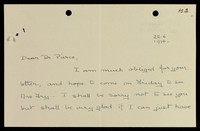 Dear Dr. Pierce,
I am much obliged for your
letter, and hope to come on Tuesday to see
I shall be sorry not to see you
but shall be very glad if I can just have